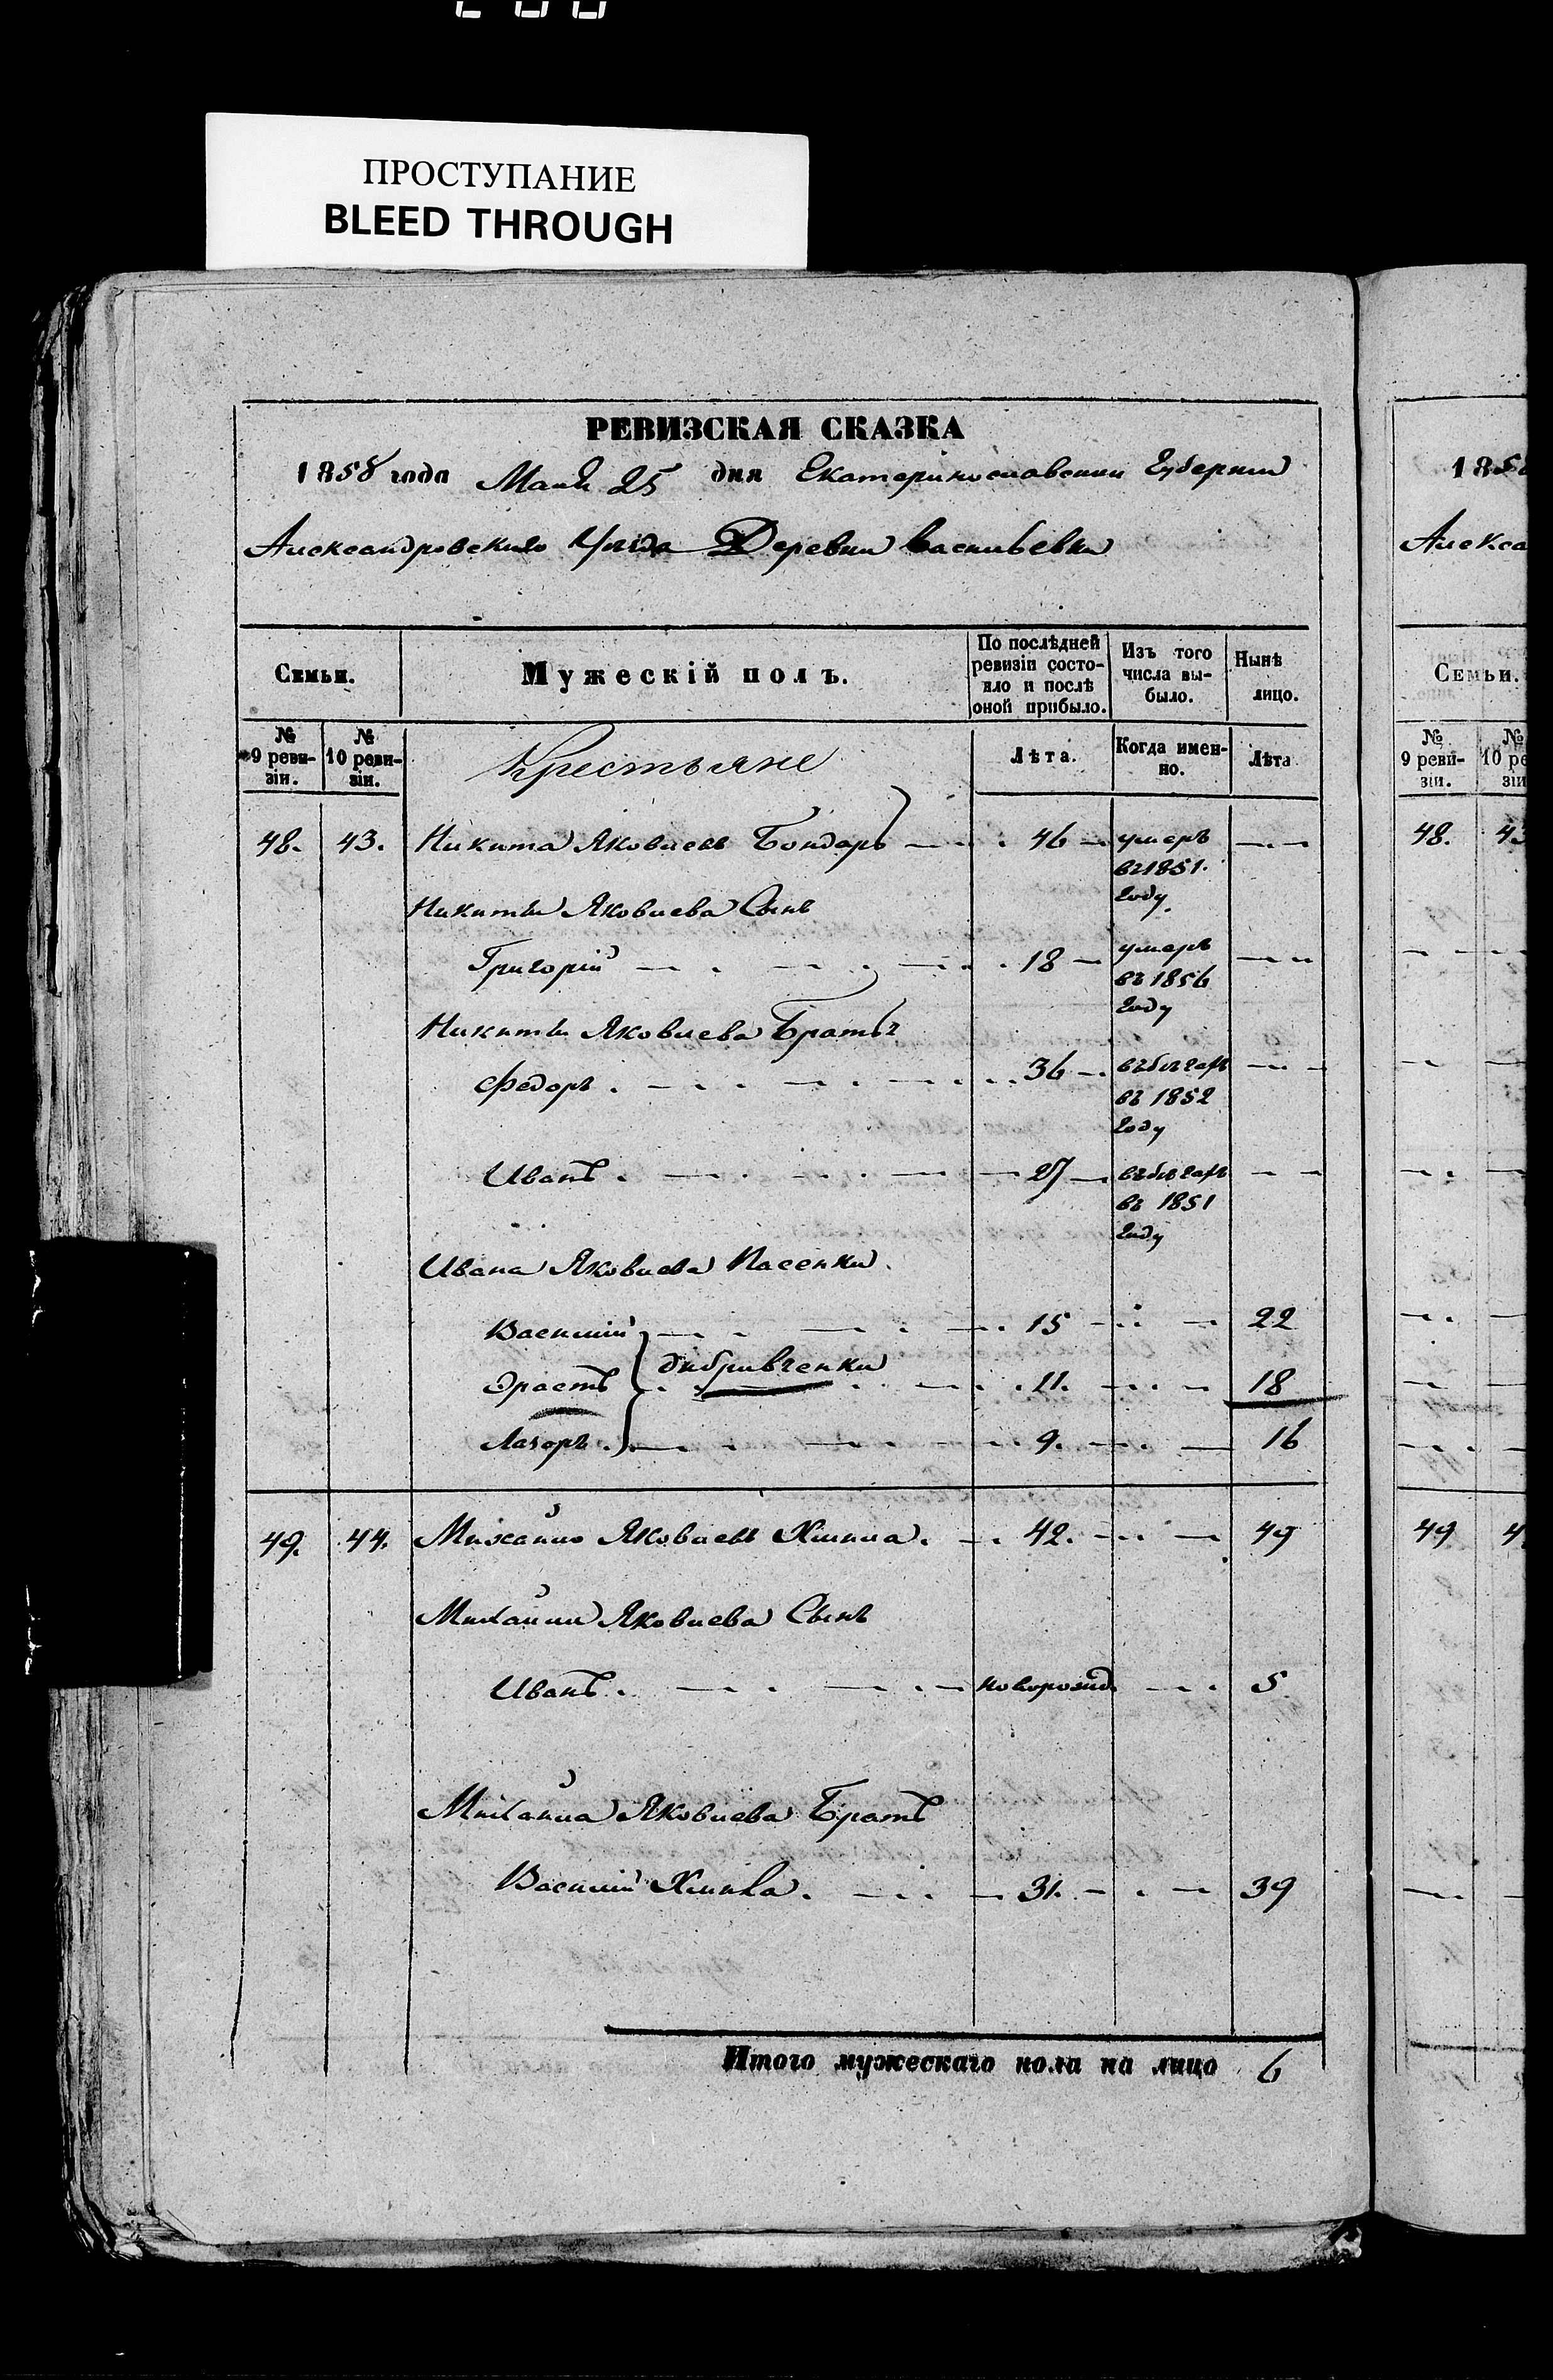 ПРОСТУПАНИЕ
BLEED THROUGH
РЕВИЗСКАЯ СКАЗКА
1858 года Мая 25 дня Екатеринославской Губернии
Александровскаго Уѣзда Деревни Васильевки
Семьи.
Мужескій полъ.
По послѣдней ревизіи состояло и послѣ оной прибыло.
Изъ того числа выбыло.
Нынѣ лицо.
№ 9 ревизіи.
№ 10 ревизіи.
Крестьяне
Лѣта.
Когда именно.
Лѣта
48. 43. Никита Яковлевъ Бондарь 46 умеръ
въ 1851.
году.
Никиты Яковлева Сынъ
Григорій 18 умеръ
въ 1856
году
Никиты Яковлева Братья
Федоръ. 36 въ бѣгахъ
въ 1852
году
Иванъ. 27 въ бѣгахъ
въ 1851
году
Ивана Яковлева Пасенки.
Василий 15 22
Эрастъ 11. 18
Лазоръ. 9. 16
49. 44. Михайло Яковлевъ Хмила. 42. 49
Михайлы Яковлева Сынъ
Иванъ. новорожд. 5
Михайла Яковлева Братъ
Василий 31. 39
Итого мужескаго пола на лицо 6
1858
Алекса
Семьи.
№ 9 ревизіи.
48.
49